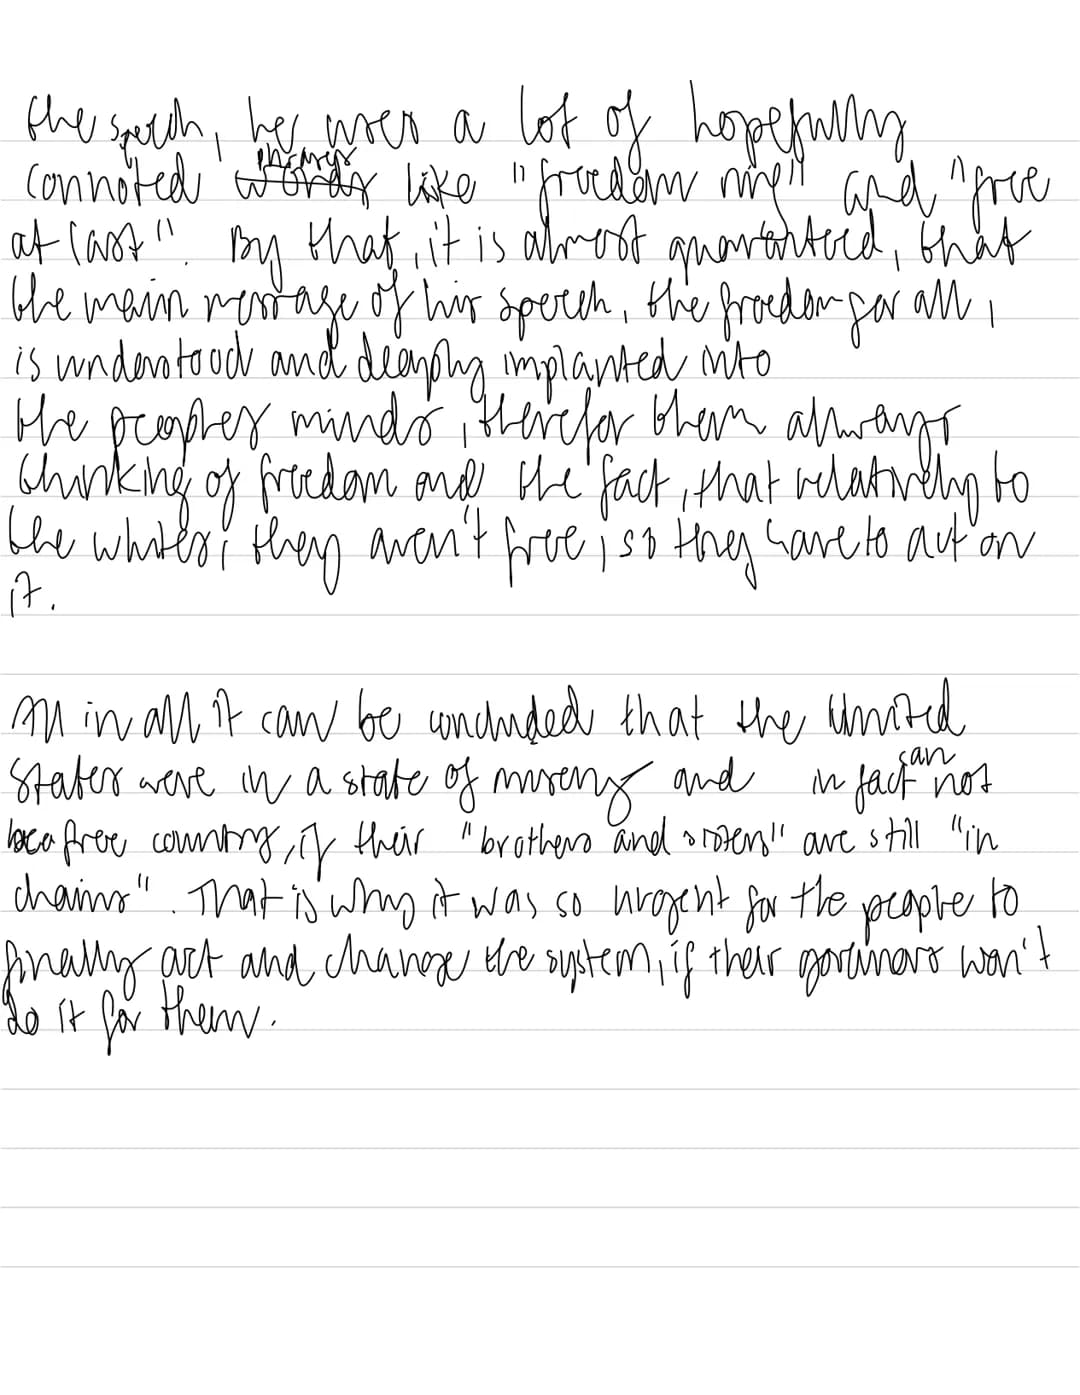 the speech, he uses a lot of hopefully
connoted phrases like "freedom ring" and "free
at last". By that, it is almost guarantied, that
the main message of his speech, the freedom for all,
is understood and deeply implanted into
the peoples minds, therefor them always
thinking of freedom and the fact, that relatively to
the whites, they aren't free, so they have to act on
it.
All in all it can be concluded that the United
States were in a state of misery and in fact can not
be a free country, if their "brothers and sisters" are still "in
chains". That is why it was so urgent for the people to
finally act and change the system, if their won't
do it for them.